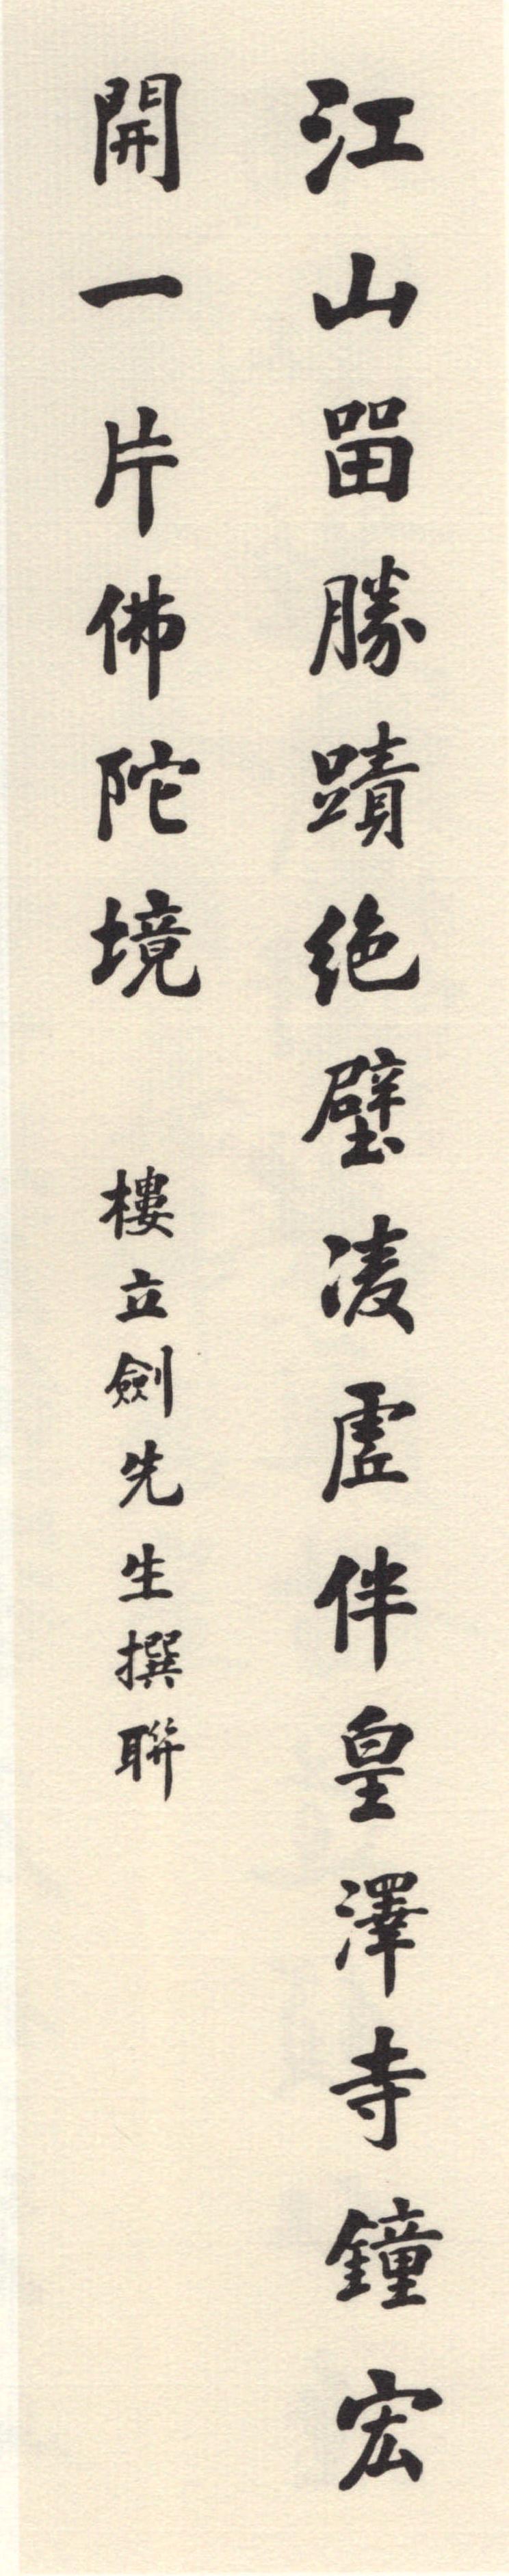 江山留勝蹟絶壁凌虛伴皇澤寺鐘宏
開一片佛陀境　樓立劍先生撰聯